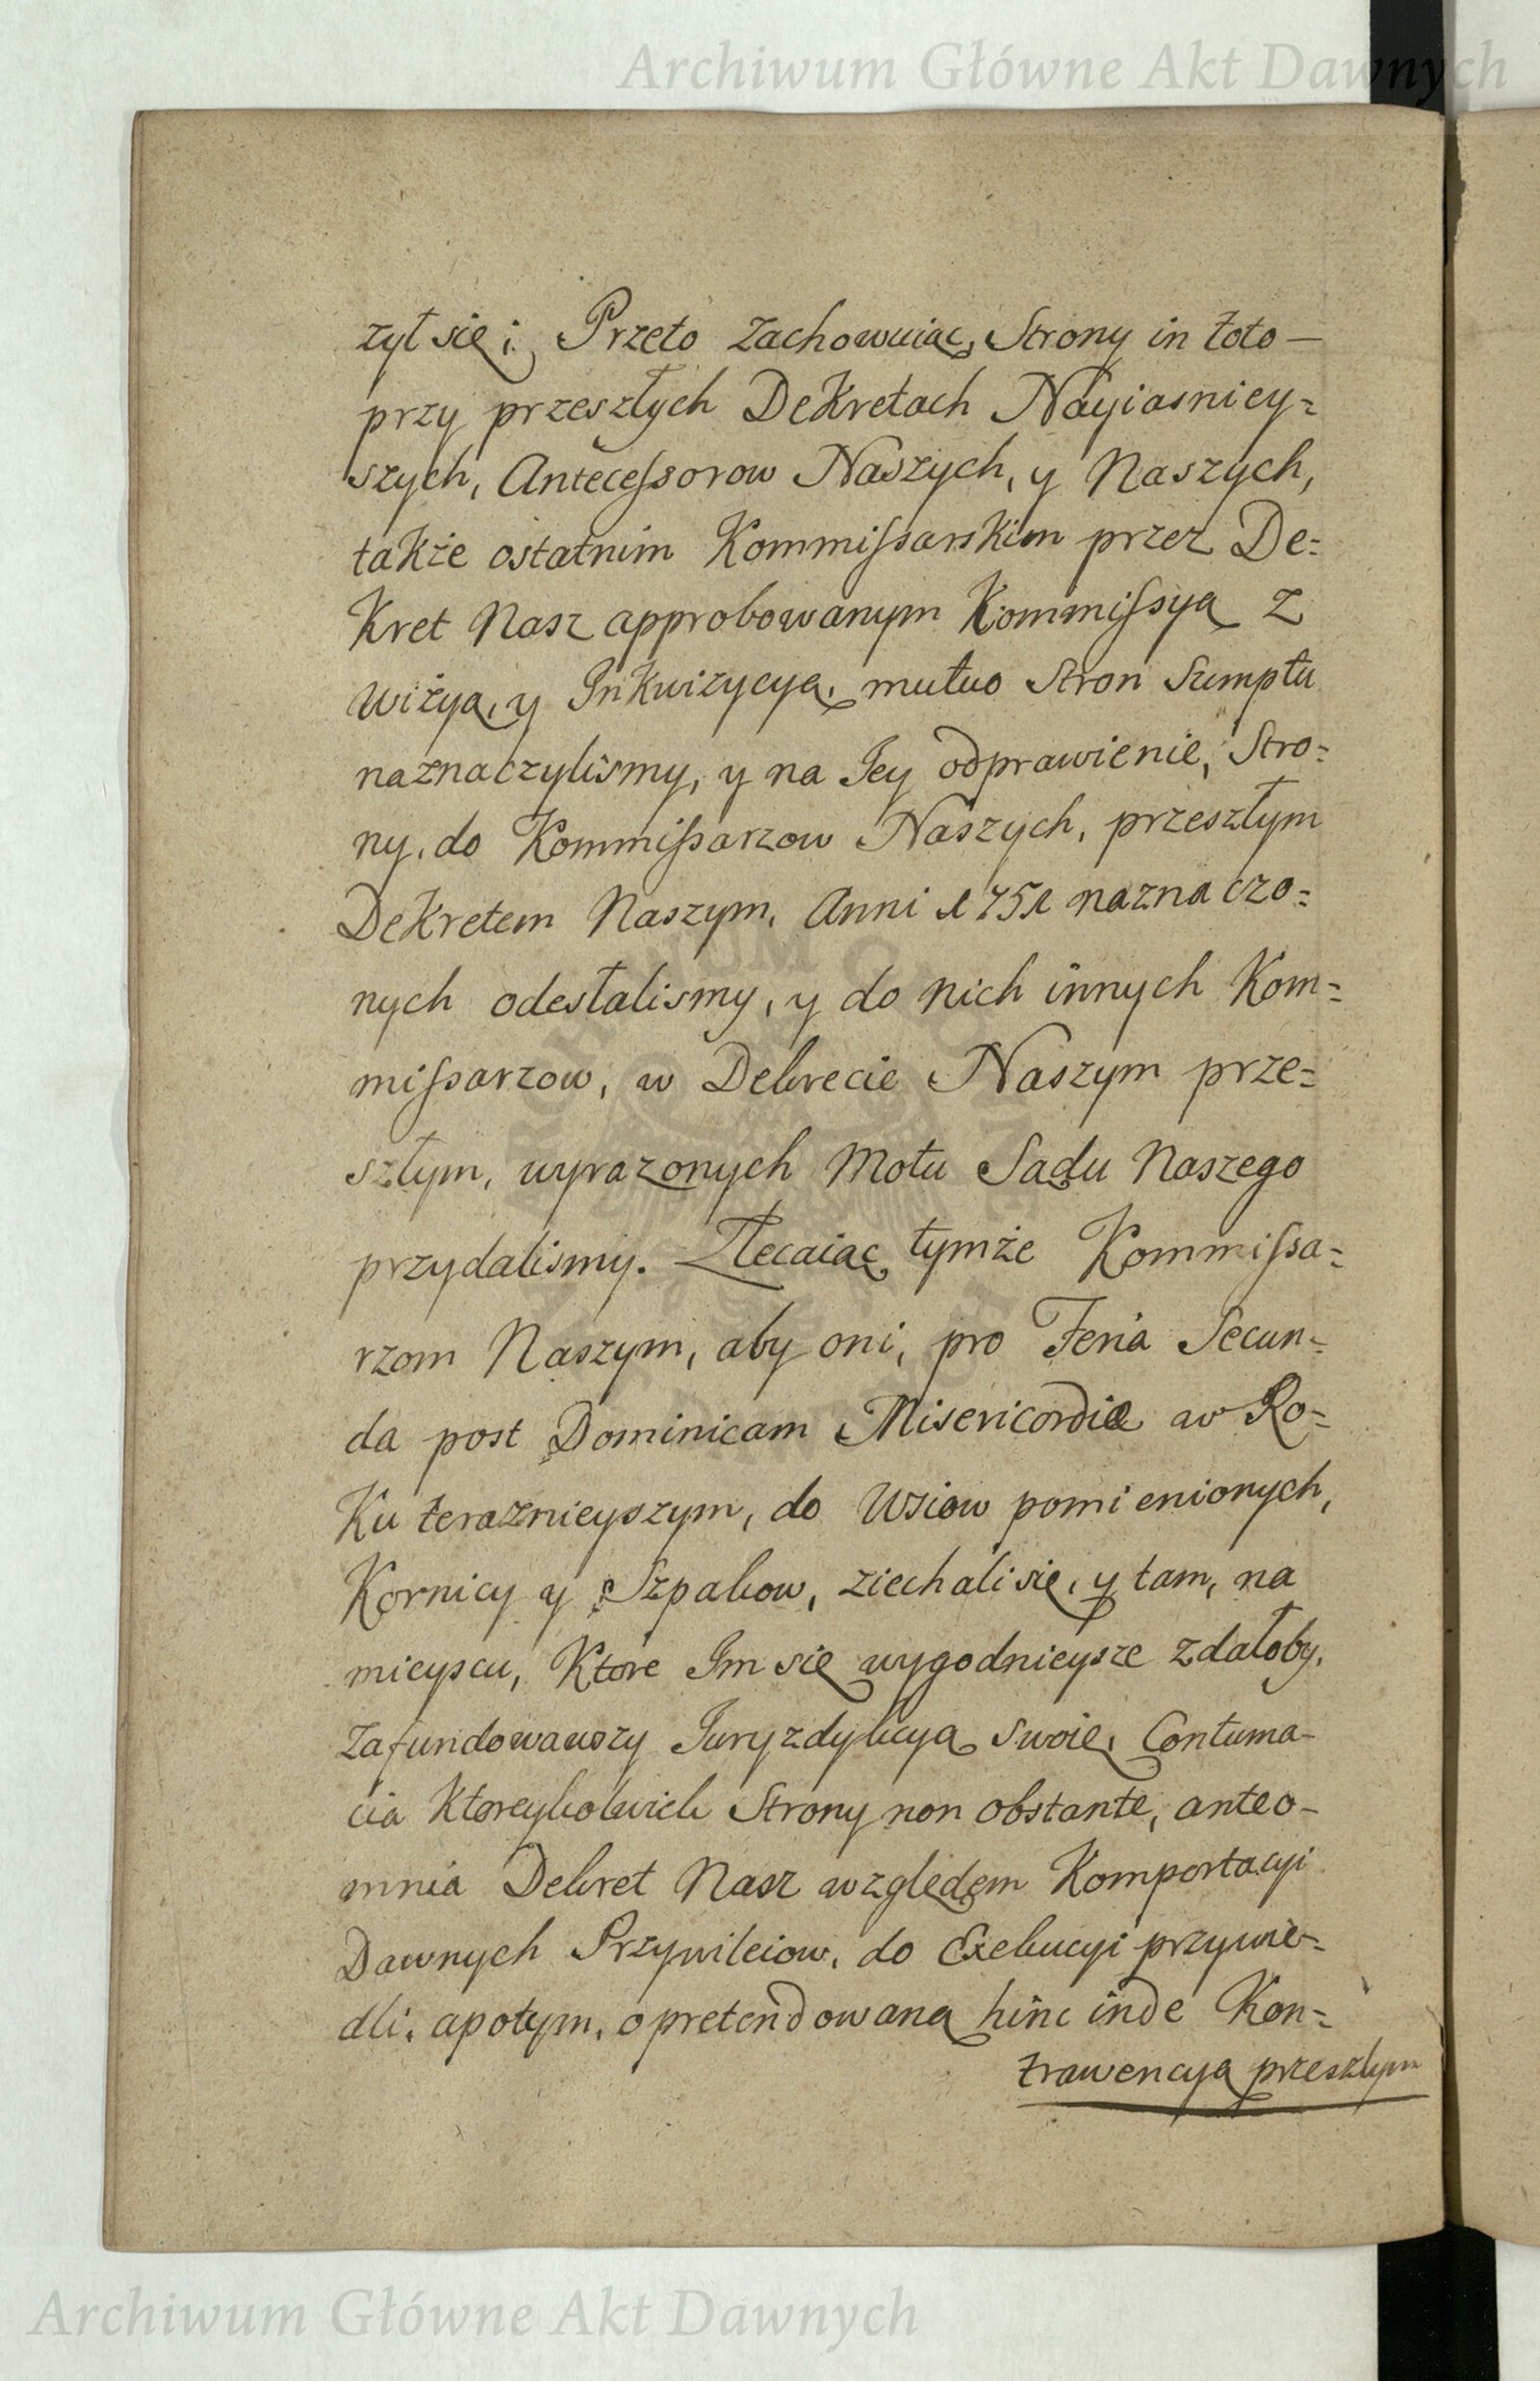 Archiwum Główne Akt Dawnych
zył się; Przeto zachowuiąc Strony in toto —
przy przeszłych DeKretach Nayiasniey=
szych, Antecessorow Naszych, y Naszych,
taKże ostatnim Kommissarskim przez De=
Kret Nasz approbowanym Kommissyą z
wizyą, y InKwizycyą, mutuo Stron Sumptu
naznaczylismy, y na Iey odprawienie, Stro=
ny, do Kommissarzow Naszych, przeszłym
DeKretem Naszym, Anni 1751 naznaczo=
nych odesłalismy, y do nich innych Kom=
missarzow, w Dekrecie Naszym prze=
szłym, wyrazonych Motu Sądu Naszego
przydalismy. Zlecaiąc tymże Kommissa=
rzom Naszym, aby oni, pro Feria Secun=
da post Dominicam Misericordiæ w Ro=
Ku teraznieyszym, do Wsiow pomienionych,
Kornicy y Szpakow, ziechali się, y tam, na
mieyscu, Ktore Im się wygodnieysze zdałoby,
Zafundowawszy Iuryzdykcyą swoię, Contuma-
cia Ktoreykolwiek Strony non obstante, anteo-
mnia Dekret Nasz względem Komportacyi
Dawnych Przywileiow, do Exekucyi przywie=
dli, apotym, o pretendowaną hinc inde Kon=
trawencyą przeszłym
Archiwum Główne Akt Dawnych